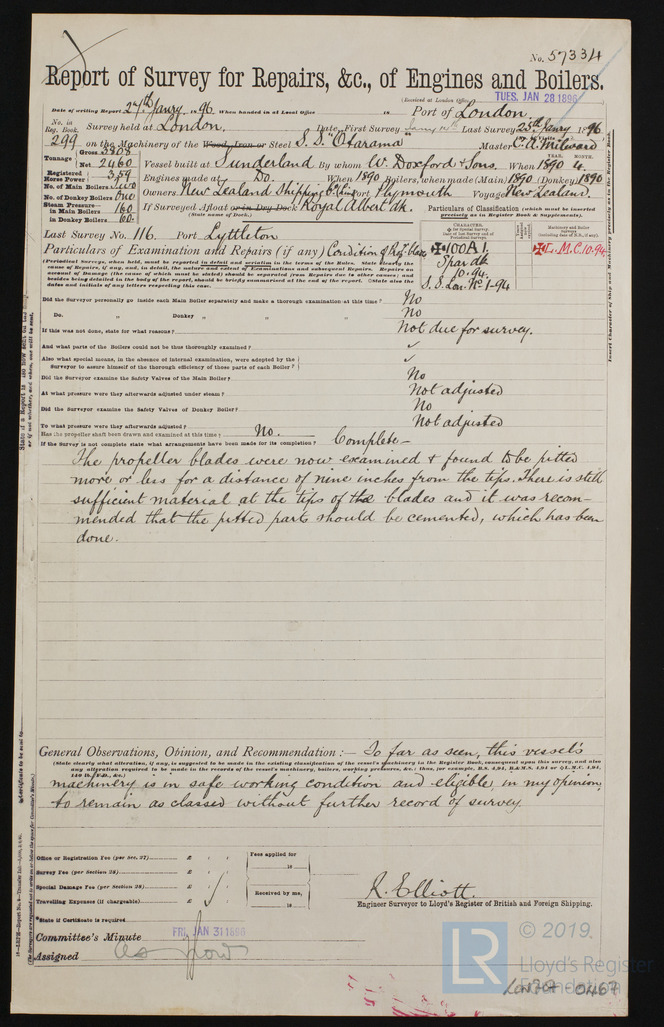 No. 57334
Report of Survey for Repairs, &c., of Engines and Boilers.
(Received at London Office TUES. JAN 28 1896
Date of writing Report 27th Janry. 1896 When handed in at Local Office 18 Port of London.
No. in Reg. Book. Survey held at London, Date, First Survey Last Survey 25th Janry 1896
299 on the Machinery of the Wood, Iron or Steel S.S. "Otarama" Master C. A. Milward
Tonnage Gross 3808 Net 2460 Vessel built at Sunderland By whom W. Doxford & Sons. When 1890 YEAR. MONTH. 4.
Registered Horse Power 359 Engines made at Do. When 1890 Boilers, when made (Main) 1890 (Donkey) 1890
No. of Main Boilers Two
No. of Donkey Boilers One Owners New Zealand Shipping Co. Port Plymouth Voyage New Zealand.
Steam Pressure in Main Boilers 160 in Donkey Boilers 60. If Surveyed Afloat or in Dry Dock Royal Albert dk.
(State name of Dock.)
Particulars of Classification (which must be inserted precisely as in Register Book & Supplements).
Last Survey No. 116. Port Lyttleton
100A1.
Spar dk
10.94.
S.S. Lon. No. 1-94
L.M.C. 10.94.
Particulars of Examination and Repairs (if any) Condition of
Did the Surveyor personally go inside each Main Boiler separately and make a thorough examination at this time? No
Do. " Donkey " " " No
If this was not done, state for what reasons? Not due for survey.
And what parts of the Boilers could not be thus thoroughly examined? ✓
Also what special means, in the absence of internal examination, were adopted by the Surveyor to assure himself of the thorough efficiency of those parts of each Boiler? ✓
Did the Surveyor examine the Safety Valves of the Main Boiler? No
At what pressure were they afterwards adjusted under steam? Not adjusted
Did the Surveyor examine the Safety Valves of Donkey Boiler? No
To what pressure were they afterwards adjusted? Not adjusted
Has the propeller shaft been drawn and examined at this time? No.
If the Survey is not complete state what arrangements have been made for its completion? Complete—
The propeller blades were now examined & found to be pitted
more or less for a distance of nine inches from the tips. There is still
sufficient material at the tips of the blades and it was recom-
mended that the pitted parts should be cemented, which has been
done.
General Observations, Opinion, and Recommendation:— So far as seen, this vessel's
(State clearly what alteration, if any, is suggested to be made in the existing classification of the vessel's machinery in the Register Book, consequent upon this survey, and also
machinery is in safe working condition and eligible, in my opinion,
to remain as classed without further record of survey
Office or Registration Fee (per Sec. 27) £
Survey Fee (per Section 28) £
Special Damage Fee (per Section 28) £
Travelling Expenses (if chargeable) £
Fees applied for 18
Received by me, 18
R. Elliott.
Engineer Surveyor to Lloyd's Register of British and Foreign Shipping.
*State if Certificate is required
Committee's Minute FRI. JAN 31 1896
Assigned as now
LR © 2019.
Lloyd's Register
Foundation